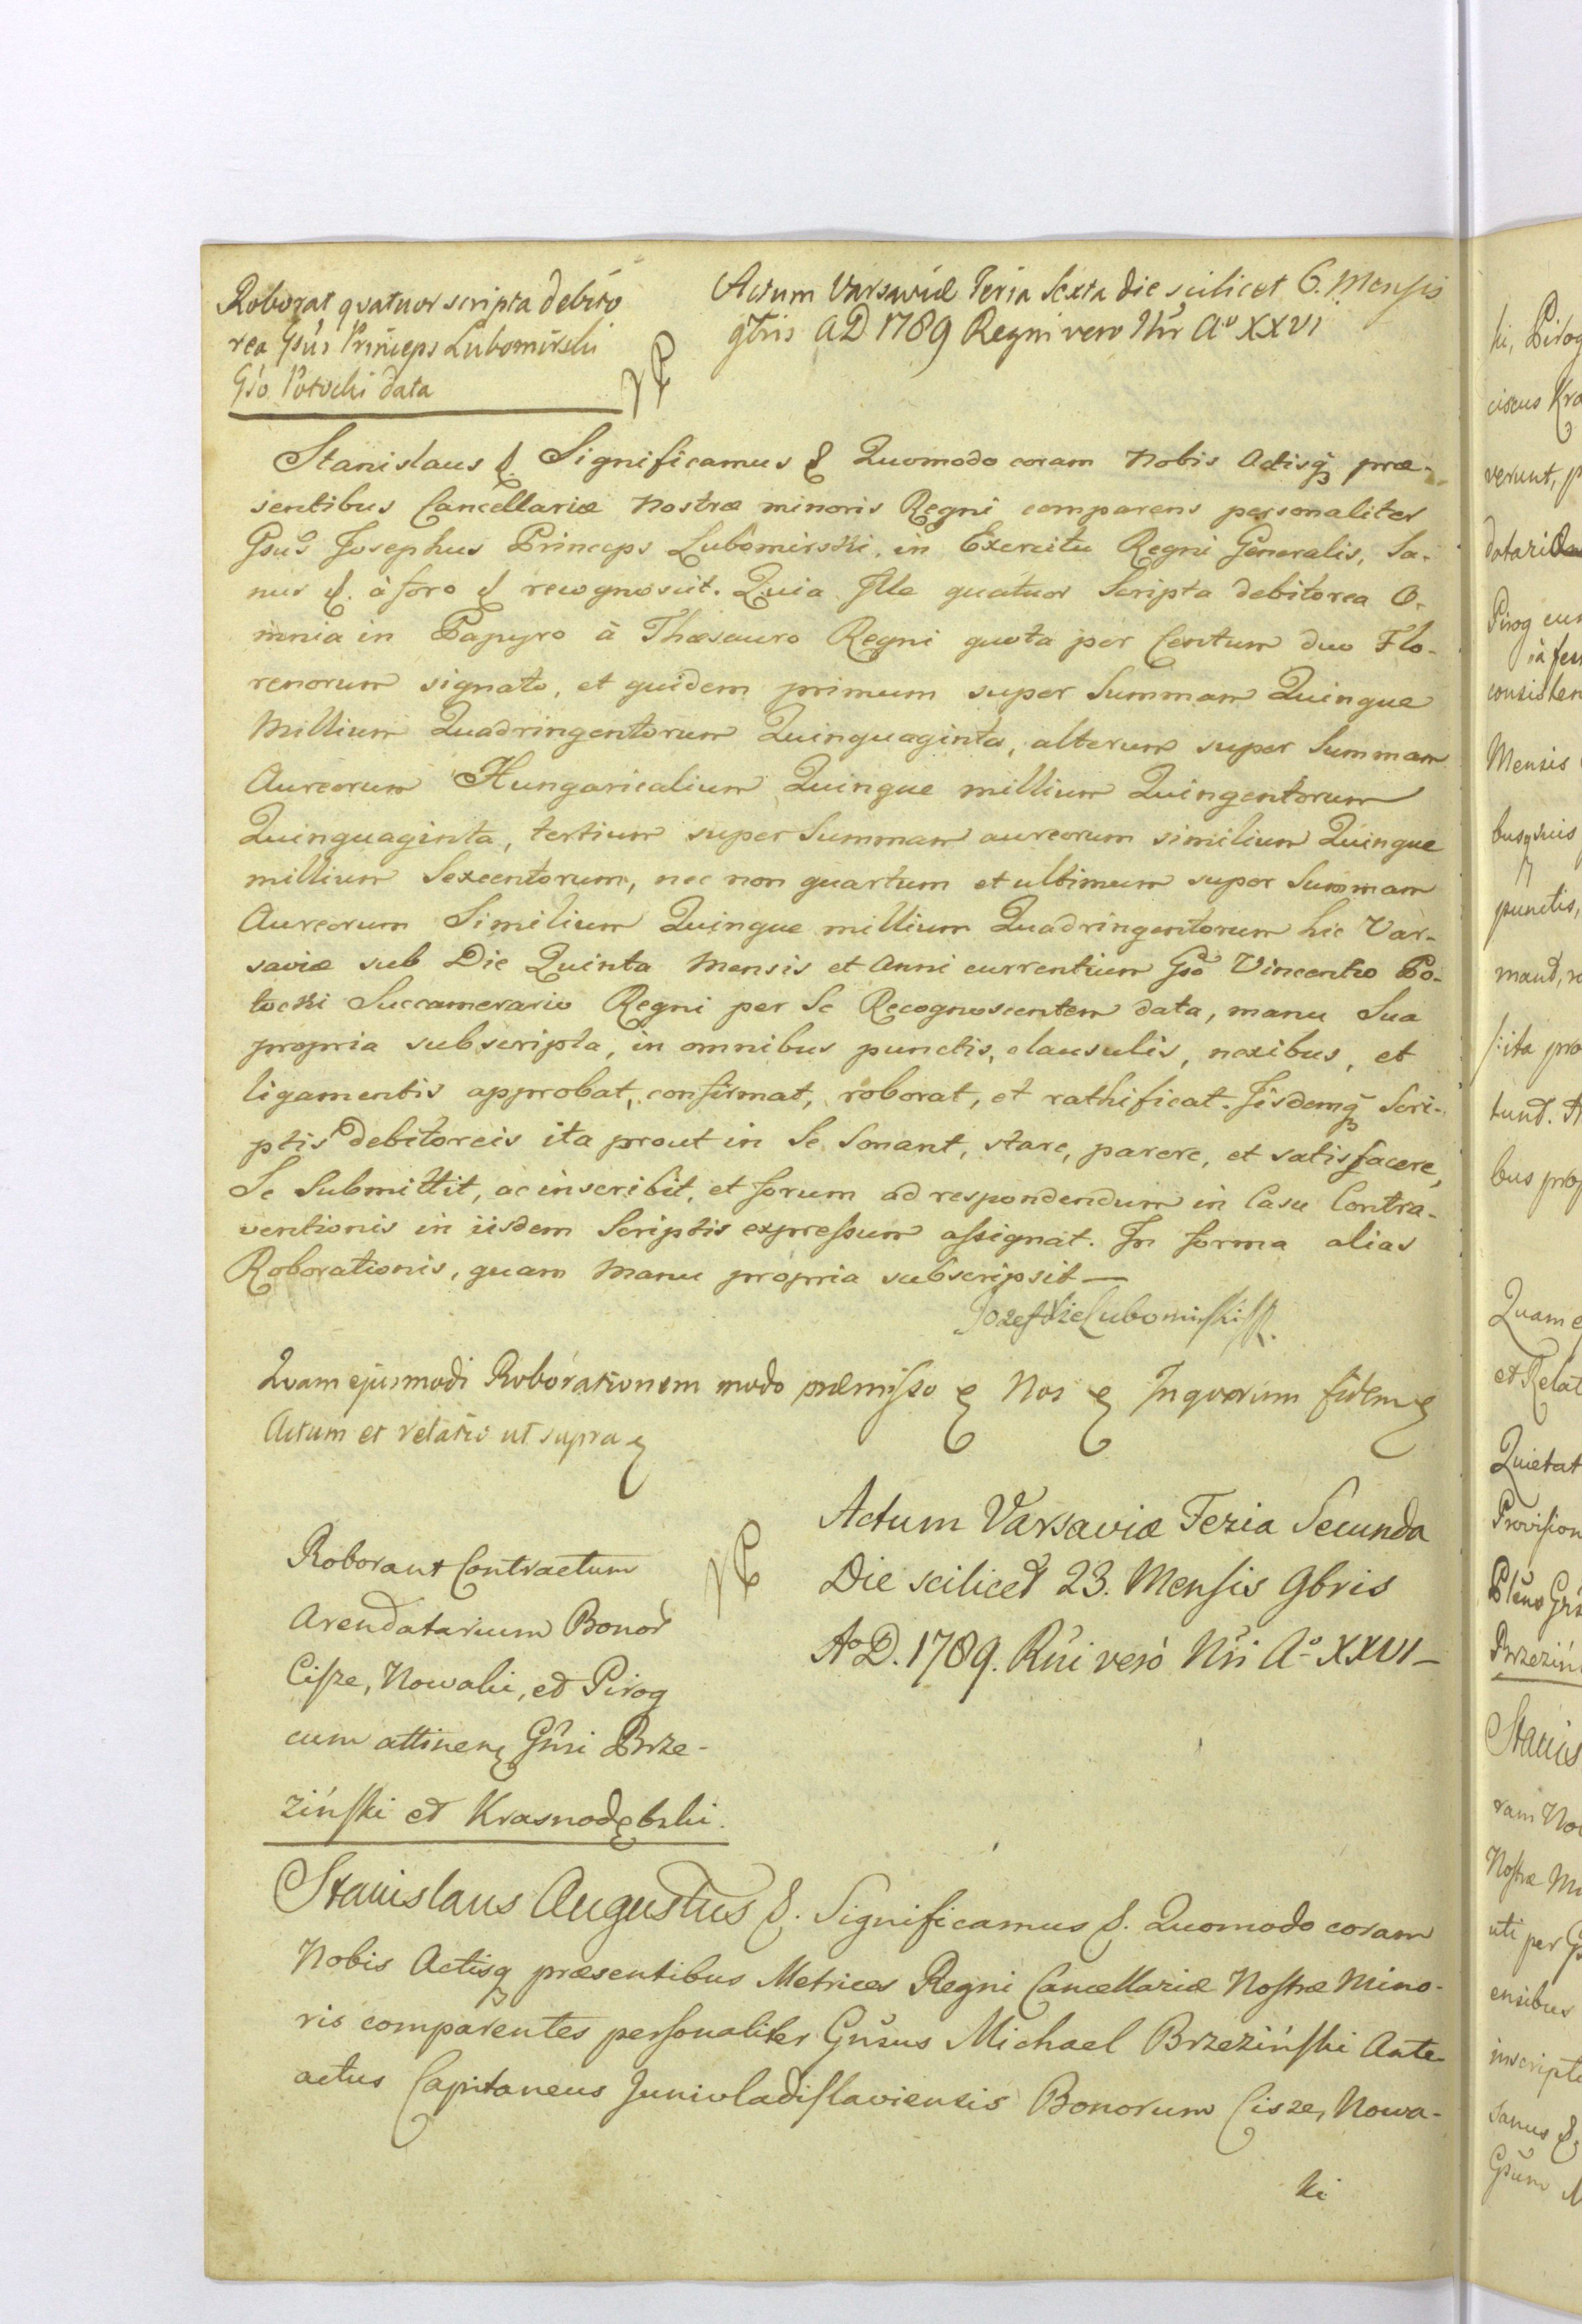 Roborat quatuor scripta debito
rea Gsus Princeps Lubomirski
Gso Potocki data
Actum Varsaviæ Feria Sexta die scilicet 6. Mensis
9bris AD 1789 Regni vero Nri Aº XXVI
Stanislaus &. Significamus & Quomodo coram Nobis Actisq præ-
sentibus Cancellariæ Nostræ minoris Regni comparens personaliter
Gsus Josephus Princeps Lubomirski, in Exercitu Regni Generalis, Sa-
nus &. à foro & recognovit. Quia Ille quatuor Scripta debitorea O-
mnia in Papyro à Thæsauro Regni quota per Centum duo Flo-
renorum signato, et quidem primum super Summam Quinque
Millium Quadringentorum Quinquaginta, alterum super Summam
Aureorum Hungaricalium Quinque millium Quingentorum
Quinquaginta, tertium super Summam aureorum similium Quinque
millium Sexcentorum, nec non quartum et ultimum super Summam
Aureorum Similium Quinque millium Quadringentorum hic Var-
saviæ sub Die Quinta Mensis et Anni currentium Gso Vincentio Po-
tocki Succamerario Regni per Se Recognoscentem data, manu Sua
propria subscripta, in omnibus punctis, clausulis, nexibus, et
ligamentis approbat, confirmat, roborat, et rathificat. Iisdemq Scri-
ptis debitoreis ita prout in Se Sonant, stare, parere, et satisfacere,
Se Submittit, ac inscribit, et forum ad respondendum in Casu Contra-
ventionis in iisdem Scriptis expressum assignat. In forma alias
Roborationis, quam Manu propria subscripsit —
Jozef Xże Lubomirski
Quam ejusmodi Roborationem modo præmisso & Nos & In quorum fidem &
Actum et relatio ut supra &
Roborant Contractum
Arendatarium Bonor
Cisze, Nowaki, et Pirog
cum attinen Gnsi Brze-
ziński et Krasnodębski.
Actum Varsaviæ Feria Secunda
Die scilicet 23. Mensis 9bris
AºD. 1789. Rni verò Nri Aº XXVI —
Stanislaus Augustus &. Significamus &. Quomodo coram
Nobis Actisq præsentibus Metrices Regni Cancellariæ Nostræ Mino-
ris comparentes personaliter Gnsus Michael Brzeziński Ante-
actus Capitaneus Junivladislaviensis Bonorum Cisze, Nowa-
ki